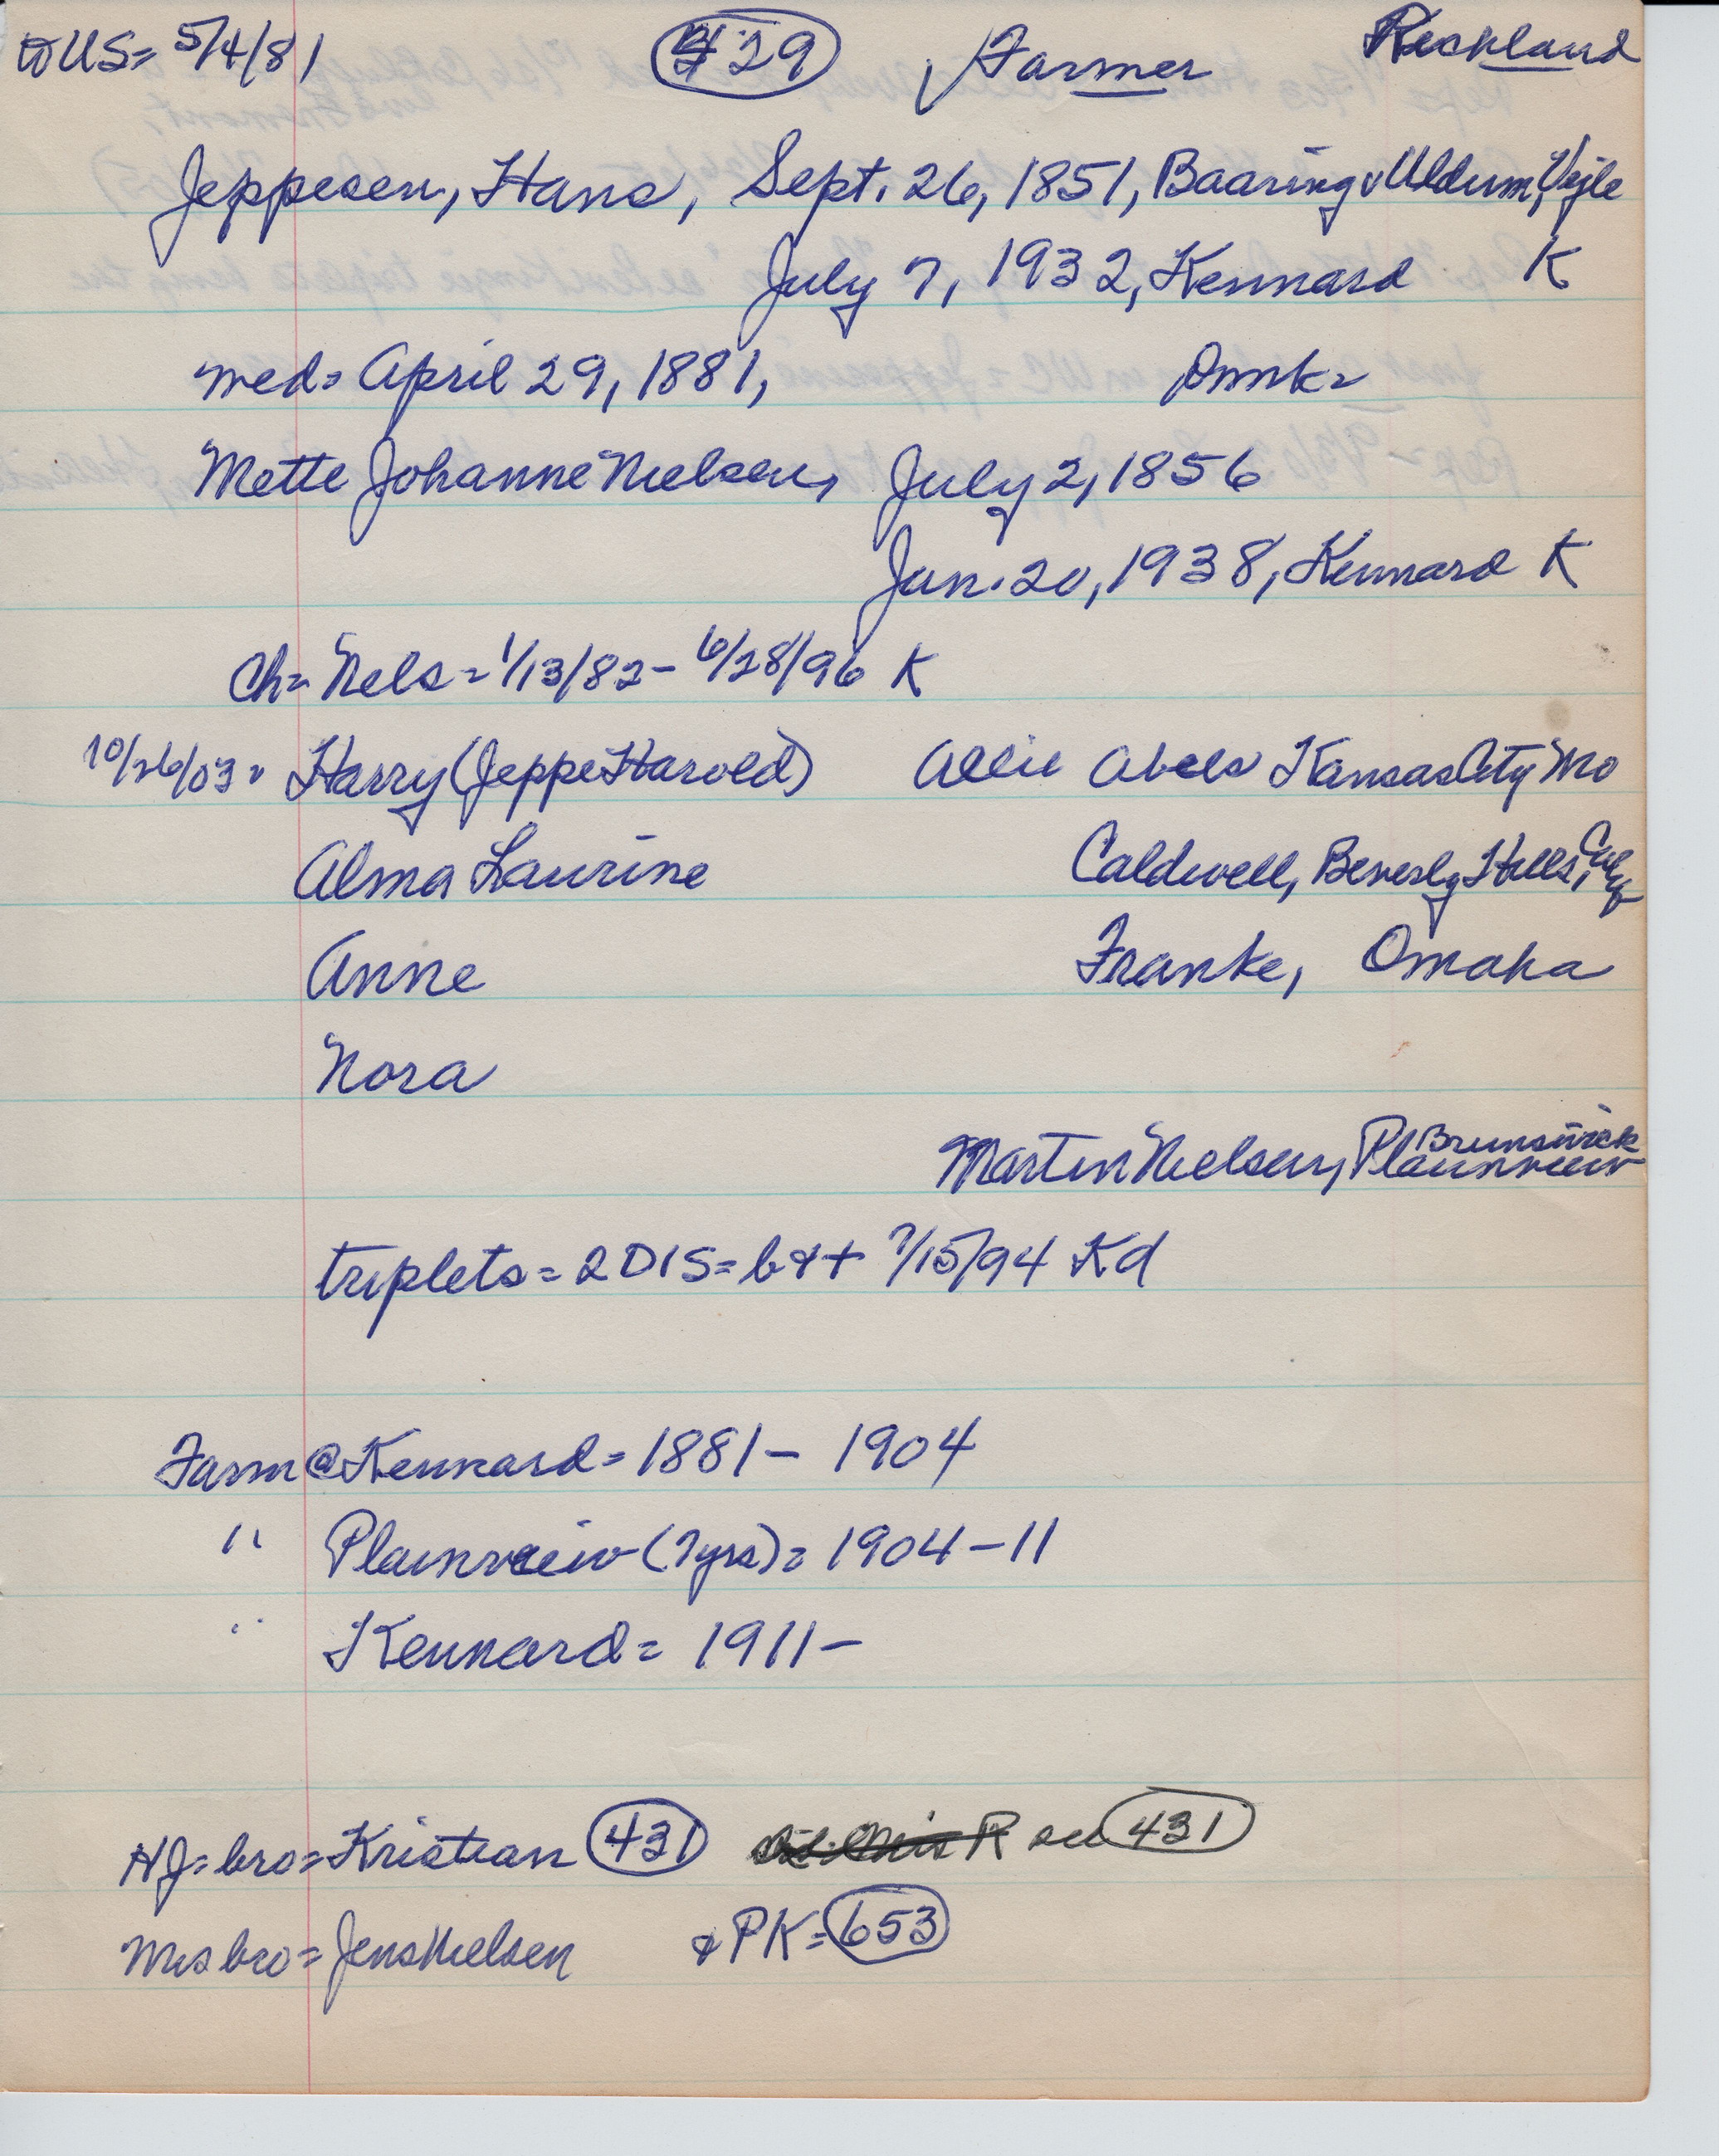 to US= 5/4/81 #29 Farmer Richland
Jeppesen, Hans, Sept. 26, 1851, Baaring v Uldum, Vejle
July 7, 1932, Kennard K
wed= April 29, 1881, Dmk=
Mette Johanne Nielsen, July 2, 1856
Jan. 20, 1938, Kennard K
Ch= Nels= 1/13/82- 6/28/96 K
10/26/03= Harry (Jeppe Harold) Allie Abels Kansas City Mo
Alma Laurine Caldwell, Beverly Hills, Calif
Anne Franke, Omaha
Nora
Brunswick
Martin Nielsen, Plainview
triplets= 2D1S= b & + 7/15/94 Kd
Farm @ Kennard= 1881- 1904
" Plainview (7yrs)= 1904-11
" Kennard= 1911-
HJ= bro= Kristian 431 R see 431
Mrs bro= Jens Nielsen & PK= 653